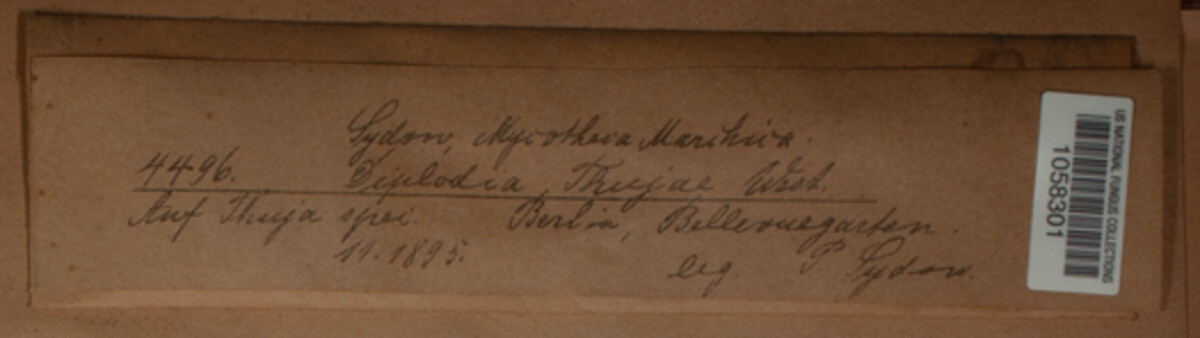 Sydow, Mycotheca Marchica.
4496. Diplodia Thujae West.
Auf Thuja spei. Berlin, Bellevuegarten.
11.1895.
leg. P Sydow.
US NATIONAL FUNGUS COLLECTIONS
1058301